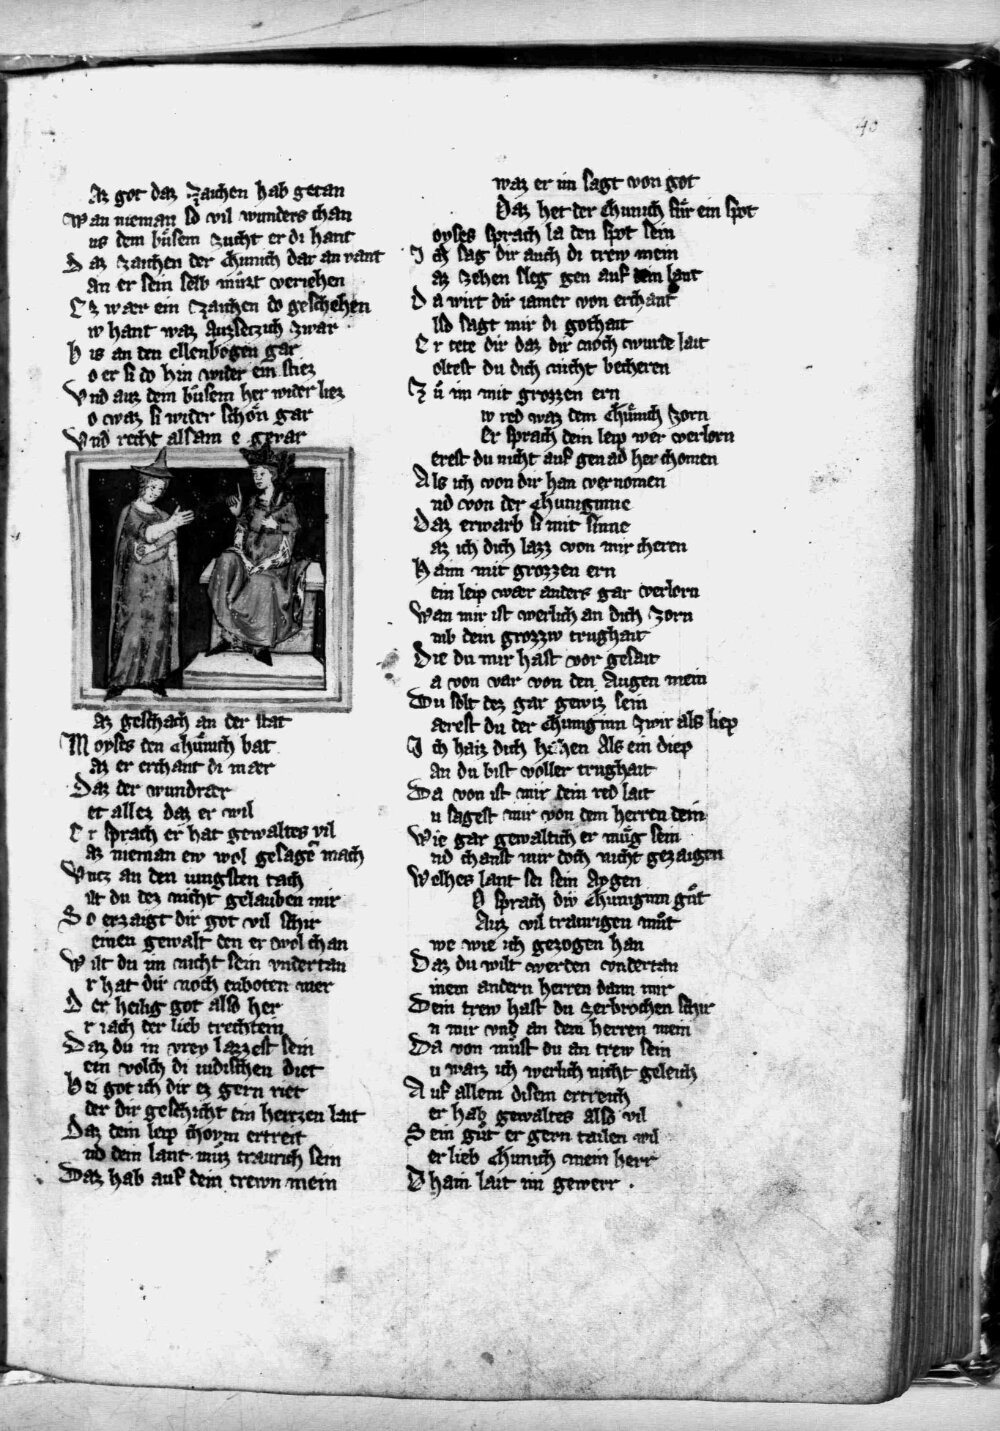 40
Az got daz zaichen hab getan
Wan nieman so vil wunders chan
us dem bůsem zucht er di hant
Daz zaichen der chunich dar an vant
an er sein selb můzt veriehen
Ez wær ein zaichen do geschehen
iv hant waz auzsetzich zwar
Bis an den ellenbogen gar
o er si do hin wider ein stiez
Vnd auz dem bůsem her wider liez
o waz si wider schon gar
Vnd recht alsam e gevar
az geschach an der stat
Moyses den chůnich bat
az er erchant di mær
Daz der wundrær
et allez daz er wil
Er sprach er hat gewaltes vil
az nieman ew wol gesagē mach
Vntz an den iungsten tach
ilt du dez nicht gelauben mir
So erzaigt dir got vil schir
einen gewalt den er wol chan
Wilt du im nicht sein vndertan
r hat dir noch enboten mer
Der heilig got also her
r rach der lieb trechtein
Daz du in vrey lazzest sein
ein volch di iudischen diet
Bei got ich dir ez gern riet
der dir geschicht ein hertzen lait
Daz dein leip choym ertreit
nd dein lant můz traurich sein
Daz hab auf dein trewn mein
waz er im sagt von got
Daz het der chunich fůr ein spot
oyses sprach la den spot sein
Ich sag dir auch di trew mein
az zehen sleg gen auf dein lant
Da wirt dir iamer von erchant
lso sagt mir di gothait
Er tete dir daz dir noch wurde lait
oltest du dich nicht becheren
Zů im mit grozzen ern
iv red waz dem chůnich zorn
Er sprach dein leip wer verlorn
erest du nicht auf genad her chomen
Als ich von dir han vernomen
nd von der chuniginne
Daz erwarb si mit sinne
az ich dich lazz von mir cheren
Haim mit grozzen ern
ein leip wær anders gar verlorn
Wan mir ist werlich an dich zorn
mb dein grozziv trughait
Die du mir hast vor gesait
a von var von den Augen mein
Du solt dez gar gewiz sein
ærest du der chuniginn zwir als liep
Ich haiz dich hahen Als ein diep
an du bist voller trughait
Da von ist mir dein red lait
u sagest mir von dem herren dein
Wie gar gewaltich er můg sein
nd chanst mir doch nicht gezaigen
Welhes lant sei sein Aygen
O sprach div chuniginn gůt
Auz vil traurigen můt
we wie ich gezogen han
Daz du wilt werden vndertan
inem andern herren dann mir
Dein trew hast du zerbrochen schir
n mir vnd an dem herren mein
Da von můst du an trew sein
u waiz ich werlich nicht geleich
Auf allem disem ertreich
er hab gewaltes also vil
Sein gůt er gern tailen wil
er lieb chunich mein herr
Dhain lait im gewerr .